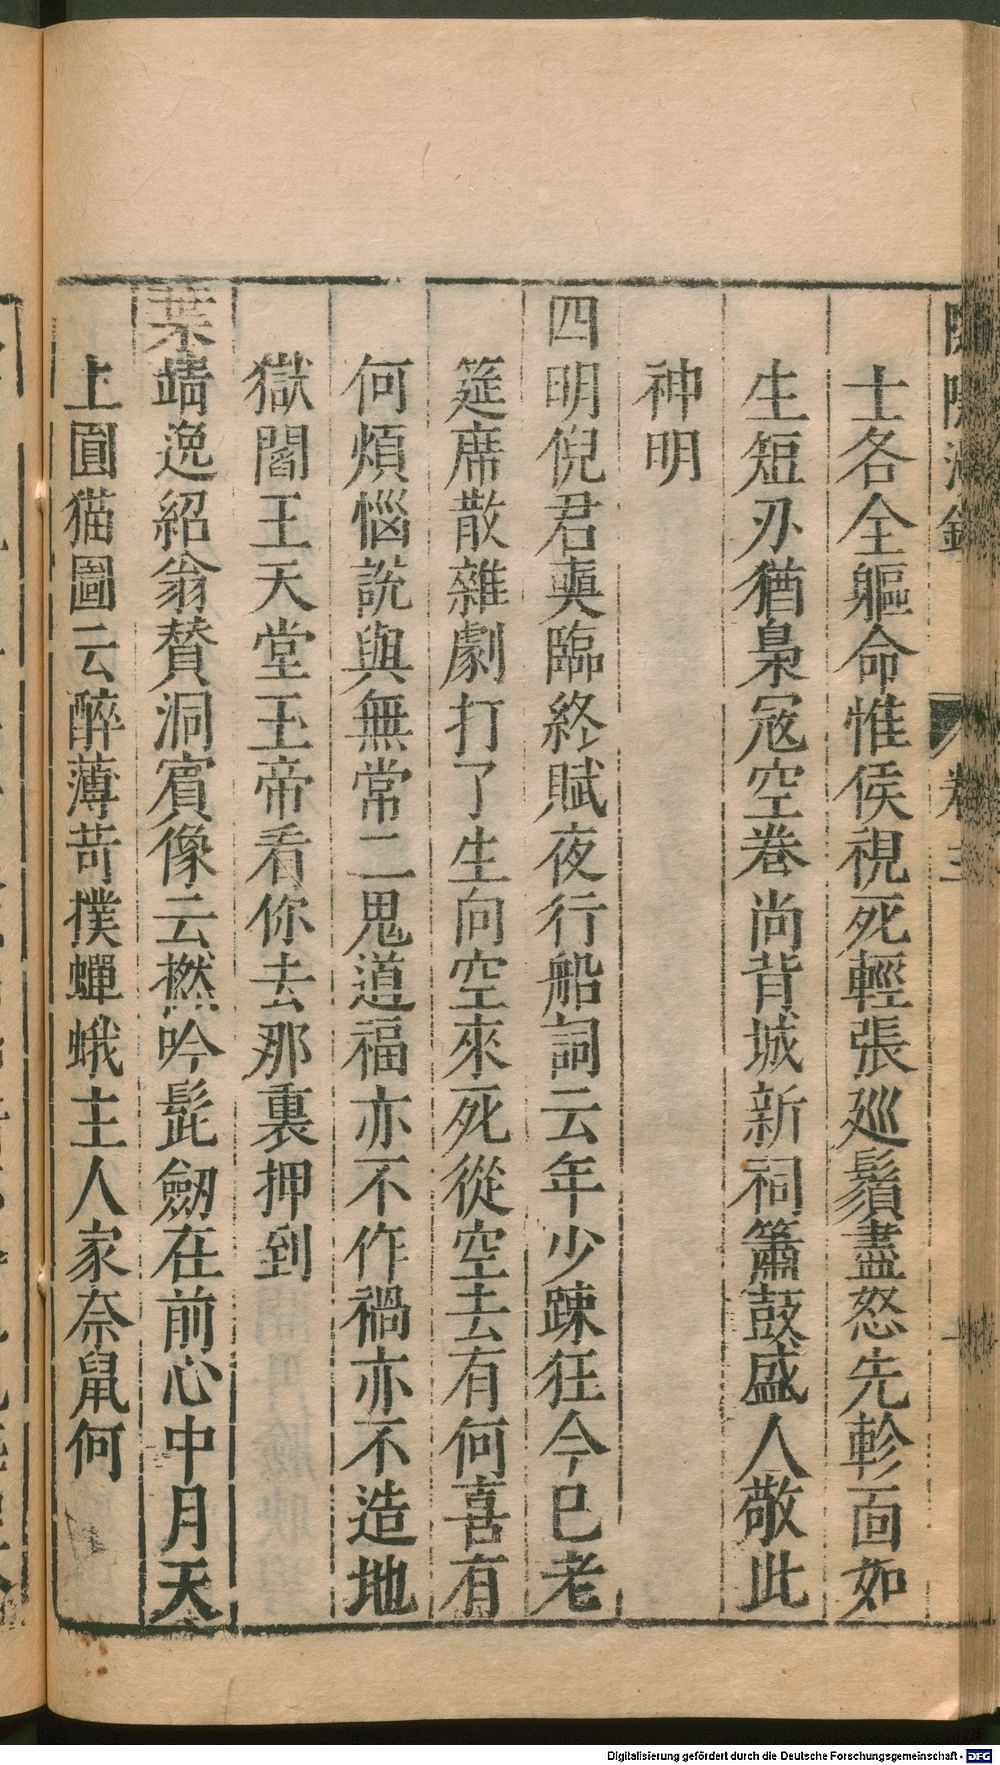 士各全軀命惟侯視死輕張廵鬚盡怒先軫面如
生短刃猶梟寇空巻尚背城新祠簫鼓盛人敬此
神明
四明倪君奭臨終賦夜行船詞云年少踈狂今已老
筵席散雜劇打了生向空來死從空去有何喜有
何煩惱説與無常二鬼道福亦不作禍亦不造地
獄閻王天堂玉帝看你去那裏押到
葉靖逸紹翁賛洞賓像云撚吟髭劒在前心中月天
上圓猫圖云醉薄苛撲蟬蛾主人家奈鼠何
卷三
Digitalisierung gefördert durch die Deutsche Forschungsgemeinschaft - DFG